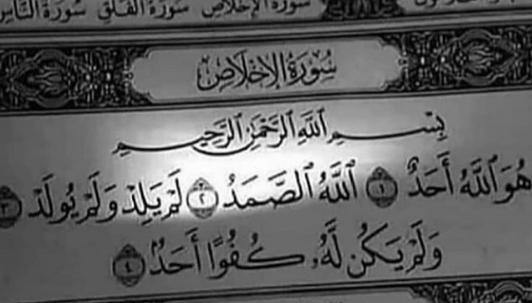 سورة الإخلاص سورة الفلق سورة الناس
سُورَةُ الإِخْلَاصِ
بِسْمِ ٱللَّهِ ٱلرَّحْمَٰنِ ٱلرَّحِيمِ
هُوَ ٱللَّهُ أَحَدٌ ١ ٱللَّهُ ٱلصَّمَدُ ٢ لَمْ يَلِدْ وَلَمْ يُولَدْ ٣
وَلَمْ يَكُن لَّهُۥ كُفُوًا أَحَدٌۢ ٤